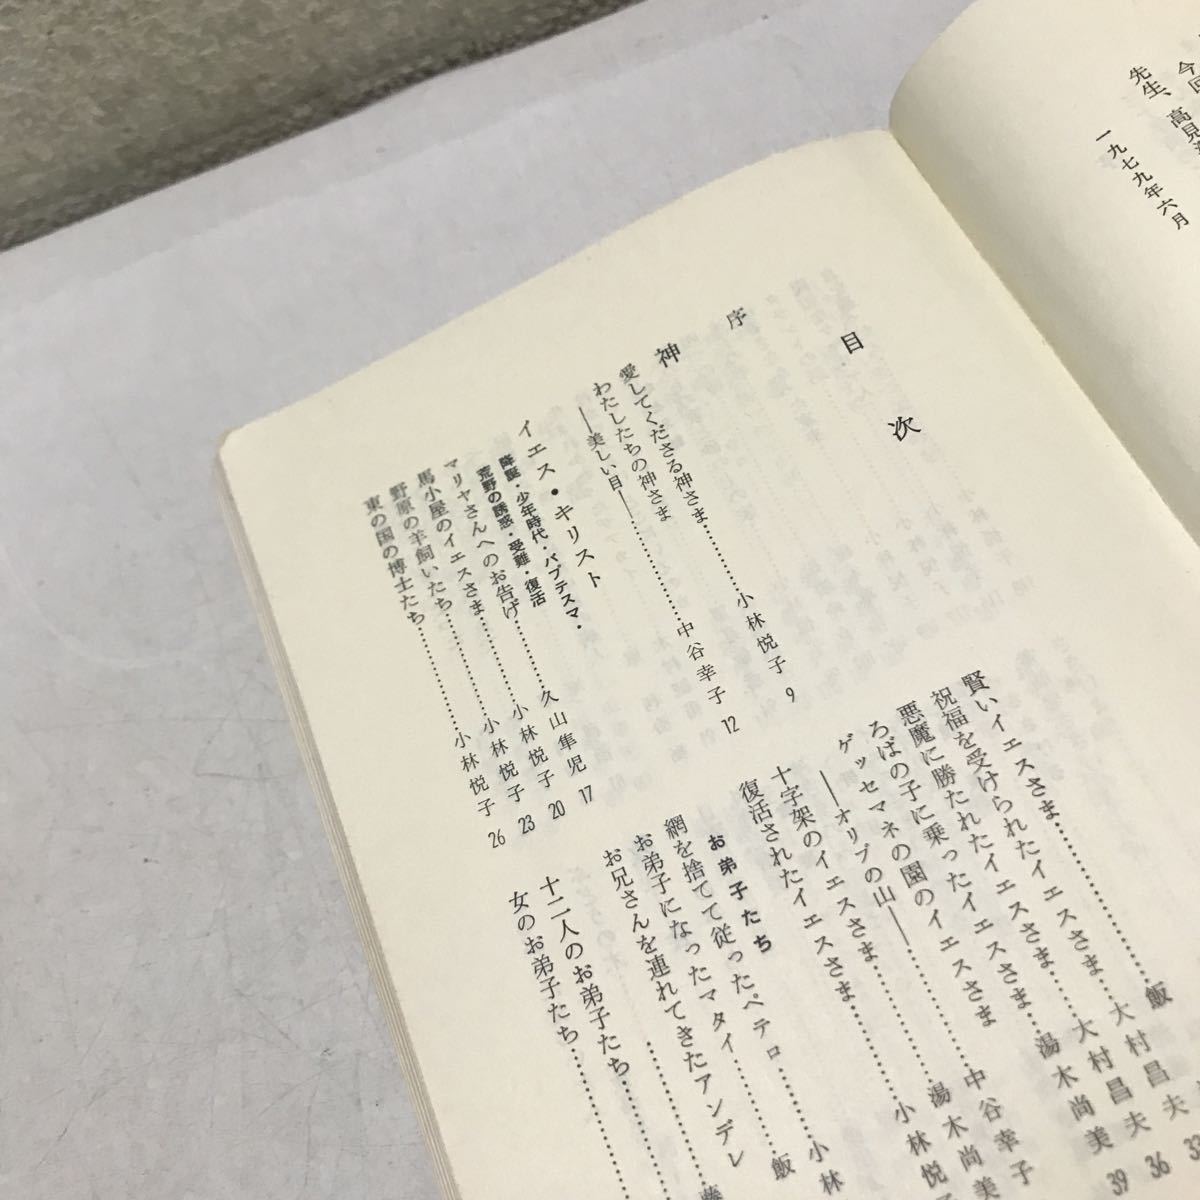 今回
先生、高見沢
一九七九年六月
目次
序
神
愛してくださる神さま…………小林悦子 9
わたしたちの神さま
――美しい目――…………中谷幸子 12
イエス・キリスト
降誕・少年時代・バプテスマ・
荒野の誘惑・受難・復活
マリヤさんへのお告げ…………久山隼児 17
馬小屋のイエスさま…………小林悦子 20
野原の羊飼いたち…………小林悦子 23
東の国の博士たち…………小林悦子 26
賢いイエスさま…………飯
祝福を受けられたイエスさま…大村昌夫 33
悪魔に勝たれたイエスさま…大村昌夫 36
ろばの子に乗ったイエスさま…湯木尚美 39
ゲッセマネの園のイエスさま
――オリブの山――…………中谷幸子
十字架のイエスさま…………湯木尚美
復活されたイエスさま…………小林悦子
お弟子たち
網を捨てて従ったペテロ…………小林
お弟子になったマタイ…………飯
お兄さんを連れてきたアンデレ
…………藤
十二人のお弟子たち…………
女のお弟子たち…………